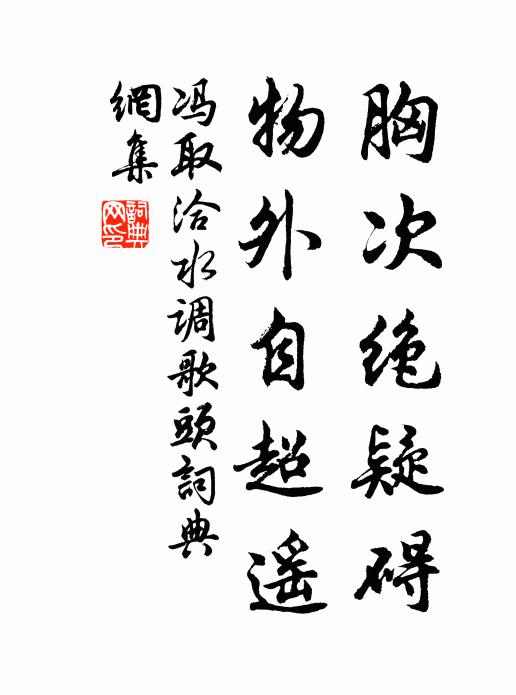 胸次绝疑碍
物外自超遥
冯取洽水调歌頭詞典
網集
詞典
网印